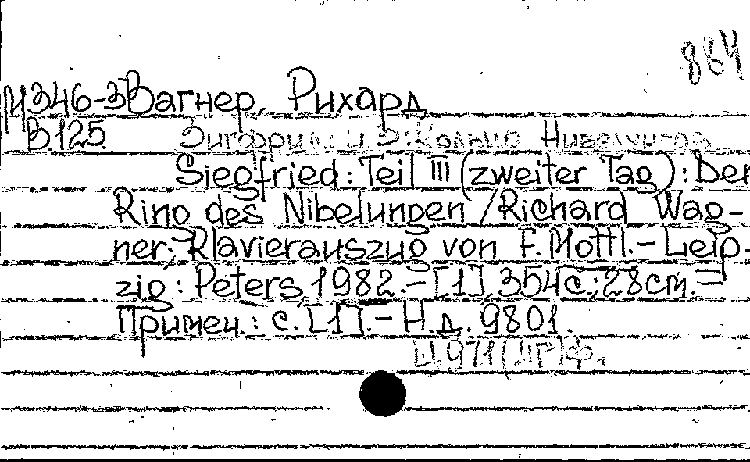 864
М346-3 Вагнер, Рихард
В125 Зигфрид. Кольцо Нибелунгов
Siegfried: Teil III (zweiter Tag): Der
Ring des Nibelungen / Richard Wag-
ner; Klavierauszug von F. Mottl. - Leip-
zig: Peters, 1982. - [1], 354 с.; 28 cm. -
Примеч.: с. [1]. - Н.д. 9801.